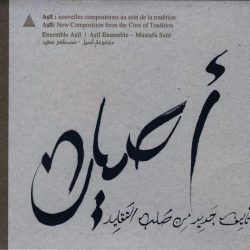 Aṣîl : nouvelles compositions au sein de la tradition
Aṣîl: New Composition from the Core of Tradition
Ensemble Aṣîl | Aṣîl Ensemble – Mustafa Saïd
مجموعة أصيل - مصطفى سعيد
أصيل
تأليف جديد من صلب التقليد